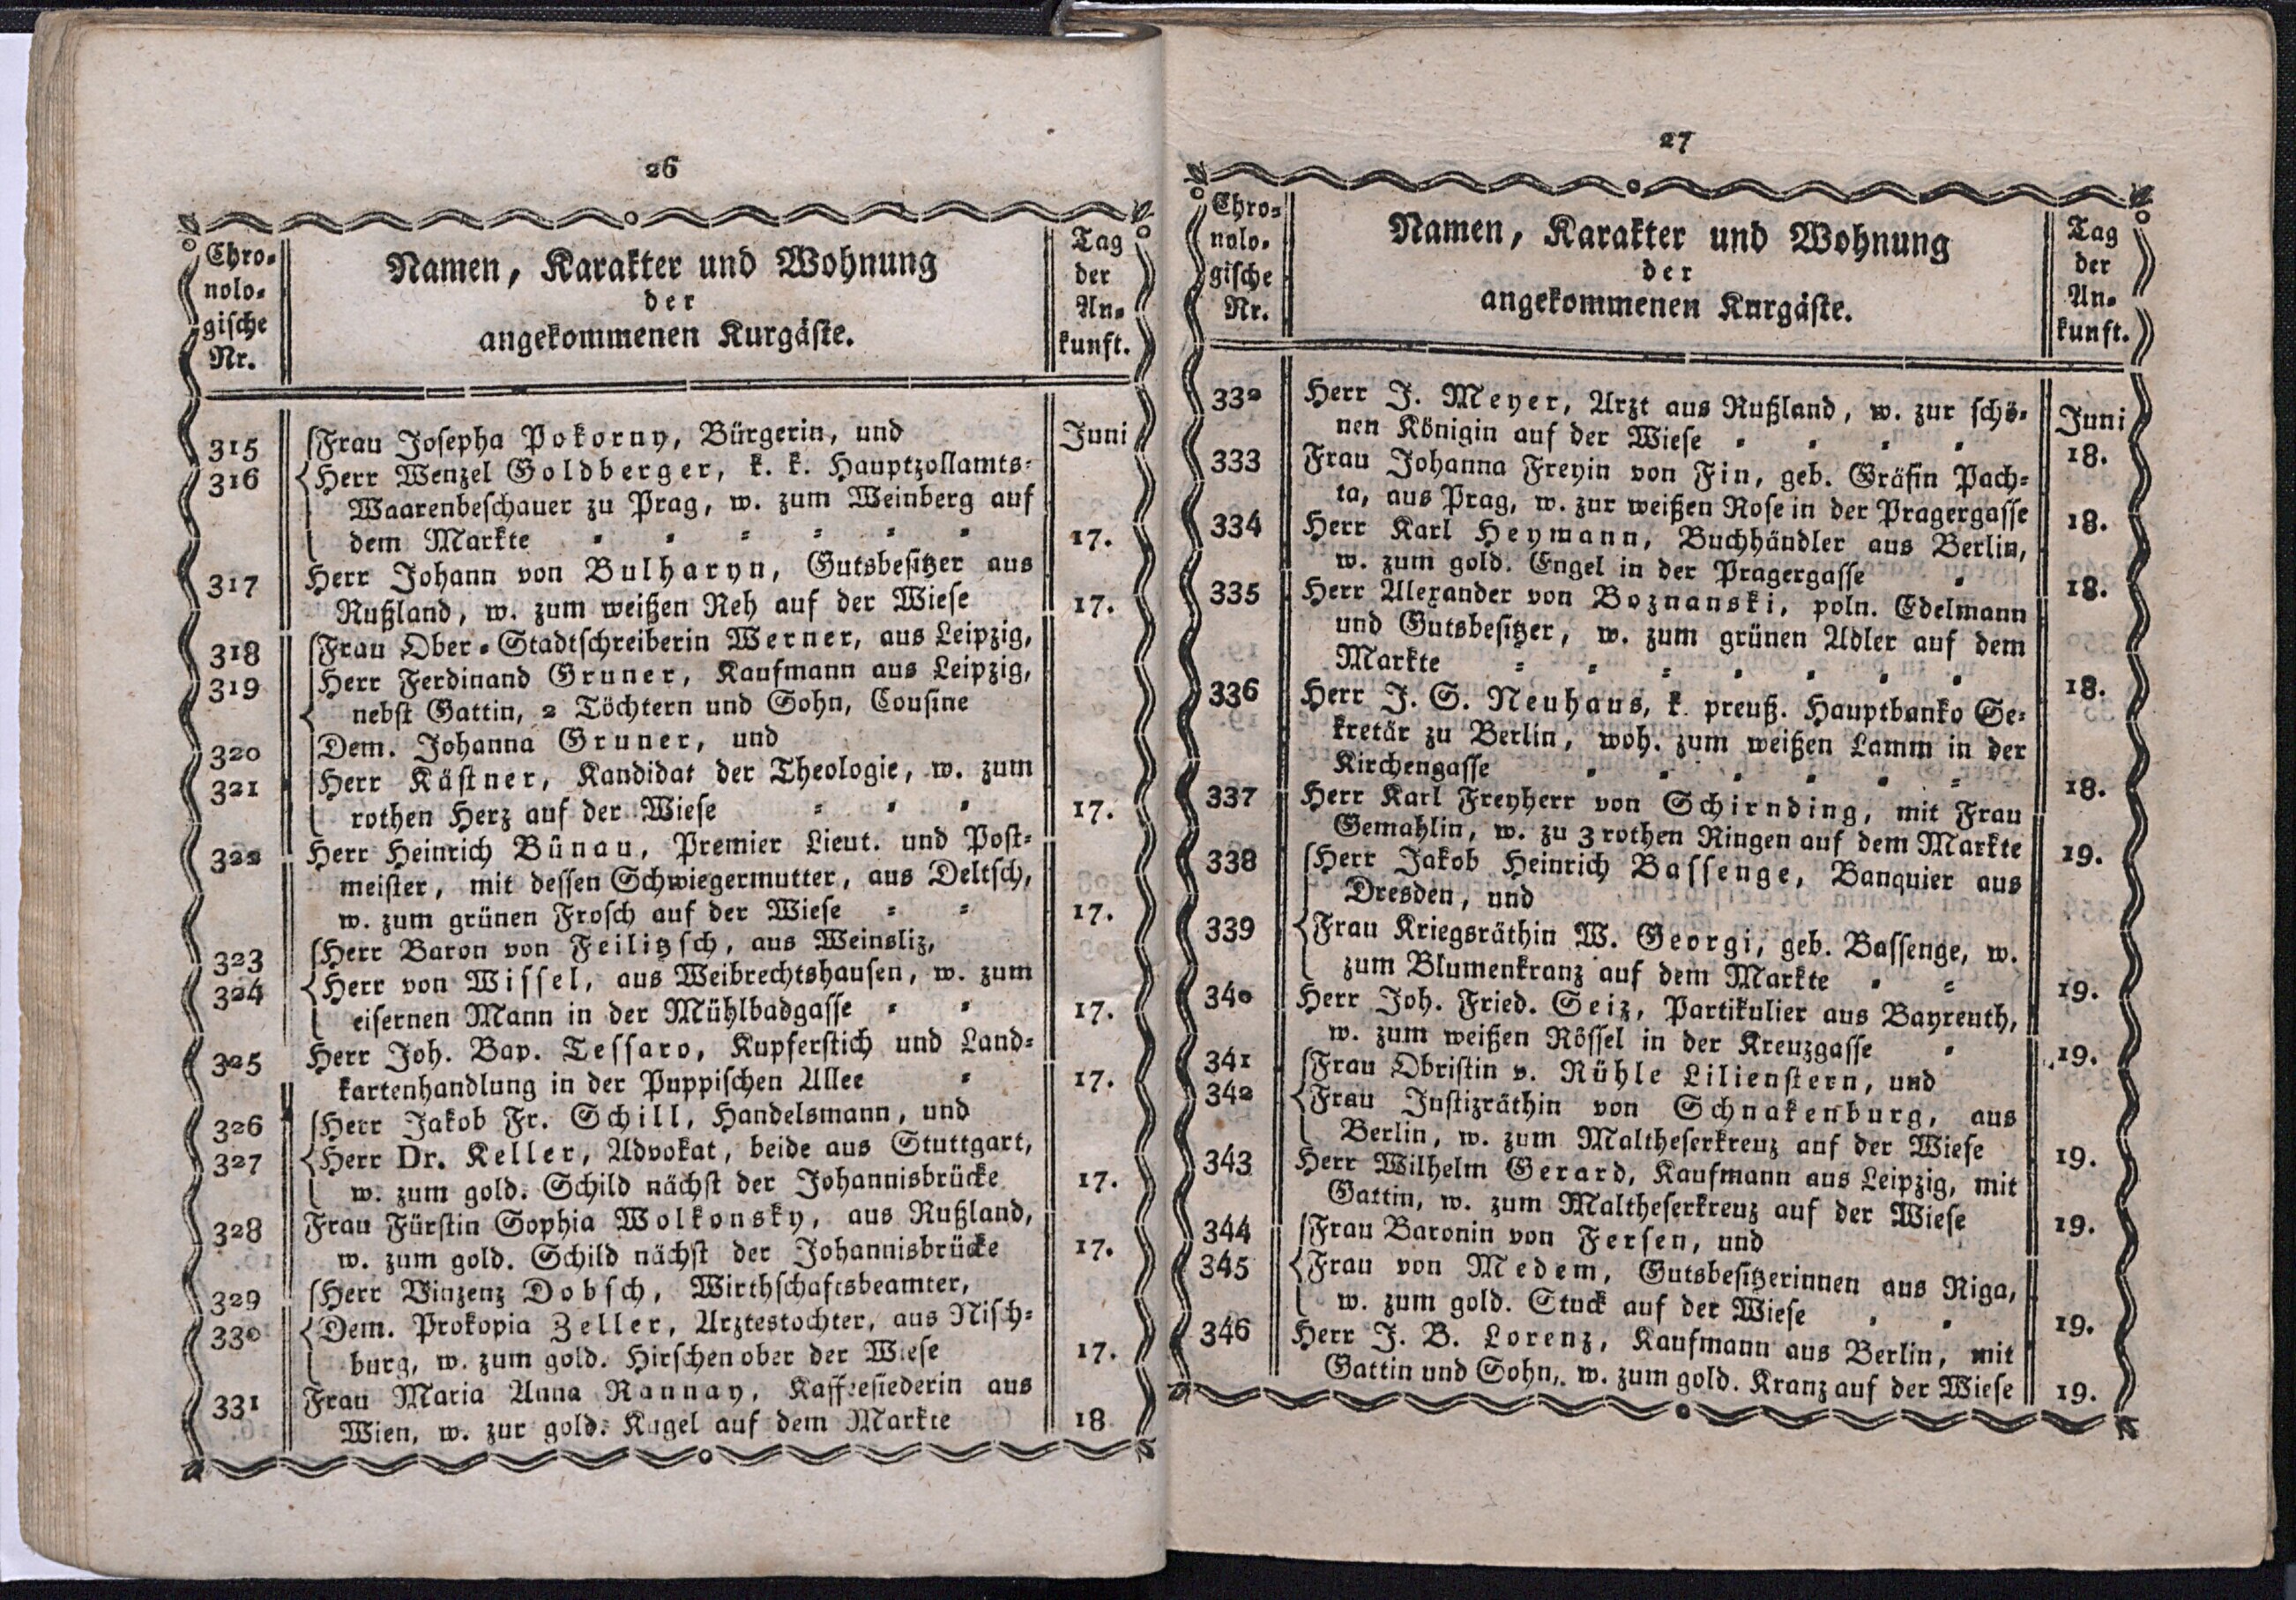 26
Chro-
nolo-
gische
Nr.
Namen, Karakter und Wohnung
der
angekommenen Kurgäste.
Tag
der
An-
kunft.
Juni
315 Frau Josepha Pokorny, Bürgerin, und
316 Herr Wenzel Goldberger, k. k. Hauptzollamts-
Waarenbeschauer zu Prag, w. zum Weinberg auf
dem Markte 17.
317 Herr Johann von Bulharyn, Gutsbesitzer aus
Rußland, w. zum weißen Reh auf der Wiese 17.
318 Frau Ober-Stadtschreiberin Werner, aus Leipzig,
319 Herr Ferdinand Gruner, Kaufmann aus Leipzig,
nebst Gattin, 2 Töchtern und Sohn, Cousine
320 Dem. Johanna Gruner, und
321 Herr Kästner, Kandidat der Theologie, w. zum
rothen Herz auf der Wiese 17.
322 Herr Heinrich Bünau, Premier Lieut. und Post-
meister, mit dessen Schwiegermutter, aus Deltsch,
w. zum grünen Frosch auf der Wiese 17.
323 Herr Baron von Feilitzsch, aus Weinsliz,
324 Herr von Wissel, aus Weibrechtshausen, w. zum
eisernen Mann in der Mühlbadgasse 17.
325 Herr Joh. Bap. Tessaro, Kupferstich und Land-
kartenhandlung in der Puppischen Allee 17.
326 Herr Jakob Fr. Schill, Handelsmann, und
327 Herr Dr. Keller, Advokat, beide aus Stuttgart,
w. zum gold. Schild nächst der Johannisbrücke 17.
328 Frau Fürstin Sophia Wolkonsky, aus Rußland,
w. zum gold. Schild nächst der Johannisbrücke 17.
329 Herr Vinzenz Dobsch, Wirthschaftsbeamter,
330 Dem. Prokopia Zeller, Arztestochter, aus Nisch-
burg, w. zum gold. Hirschen ober der Wiese 17.
331 Frau Maria Anna Rannay, Kaffeesiederin aus
Wien, w. zur gold. Kugel auf dem Markte 18
27
Chro-
nolo-
gische
Nr.
Namen, Karakter und Wohnung
der
angekommenen Kurgäste.
Tag
der
An-
kunft.
Juni
332 Herr J. Meyer, Arzt aus Rußland, w. zur schö-
nen Königin auf der Wiese 18.
333 Frau Johanna Freyin von Fin, geb. Gräfin Pach-
ta, aus Prag, w. zur weißen Rose in der Pragergasse 18.
334 Herr Karl Heymann, Buchhändler aus Berlin,
w. zum gold. Engel in der Pragergasse 18.
335 Herr Alexander von Boznanski, poln. Edelmann
und Gutsbesitzer, w. zum grünen Adler auf dem
Markte 18.
336 Herr J. S. Neuhaus, k. preuß. Hauptbanko Se-
kretär zu Berlin, woh. zum weißen Lamm in der
Kirchengasse 18.
337 Herr Karl Freyherr von Schirnding, mit Frau
Gemahlin, w. zu 3 rothen Ringen auf dem Markte 19.
338 Herr Jakob Heinrich Bassenge, Banquier aus
Dresden, und
339 Frau Kriegsräthin W. Georgi, geb. Bassenge, w.
zum Blumenkranz auf dem Markte 19.
340 Herr Joh. Fried. Seiz, Partikulier aus Bayreuth,
w. zum weißen Rössel in der Kreuzgasse 19.
341 Frau Obristin v. Rühle Lilienstern, und
342 Frau Justizräthin von Schnakenburg, aus
Berlin, w. zum Maltheserkreuz auf der Wiese 19.
343 Herr Wilhelm Gerard, Kaufmann aus Leipzig, mit
Gattin, w. zum Maltheserkreuz auf der Wiese 19.
344 Frau Baronin von Fersen, und
345 Frau von Medem, Gutsbesitzerinnen aus Riga,
w. zum gold. Stuck auf der Wiese 19.
346 Herr J. B. Lorenz, Kaufmann aus Berlin, mit
Gattin und Sohn, w. zum gold. Kranz auf der Wiese 19.